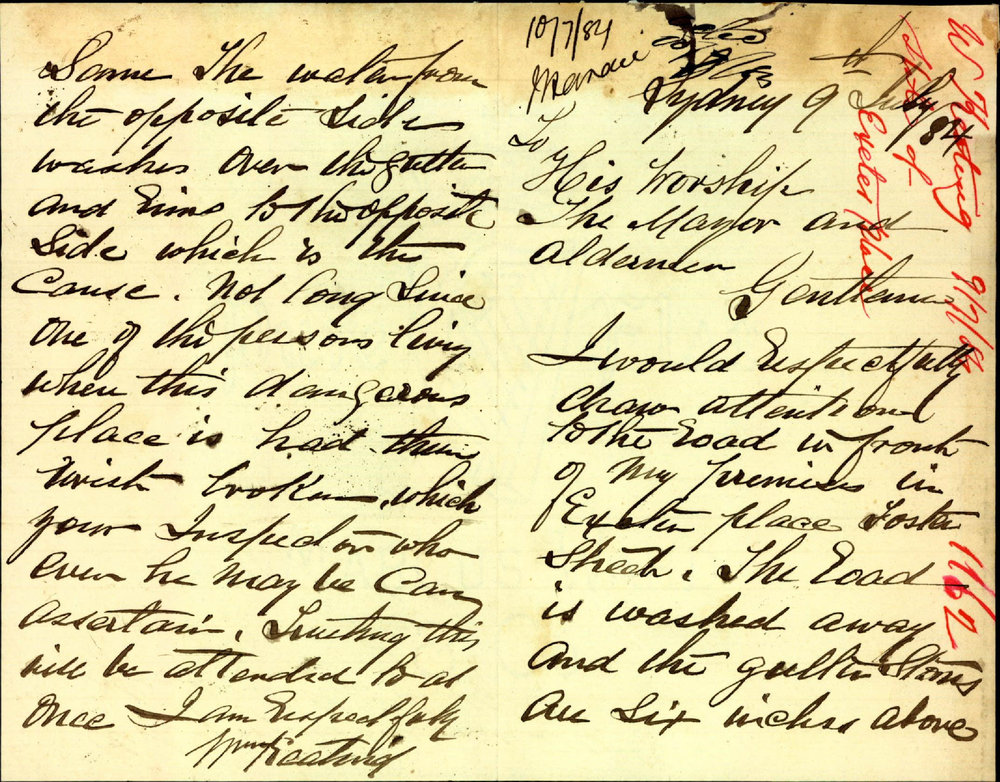 10/7/84
Sydney 9th July/84
To
His Worship
The Mayor and
Aldermen
Gentlemen
I would Respectfully
draw attention
to the Road in front
of My premises in
Exeter place Foster
Street. The Road
is washed away
and the gutter Stones
are Six inches above
Same The water from
the opposite Side
washes over the gutter
and Runs to the opposite
Side which is the
Cause. Not long Since
one of the persons living
when this dangerous
place is had their
wrist broken, which
your Inspector who
ever he may be Can
assertain. Trusting this
will be attended to at
once I am Respectfuly
Wm Keating
W Keating 9/7/84
State of
Exeter Place
1162